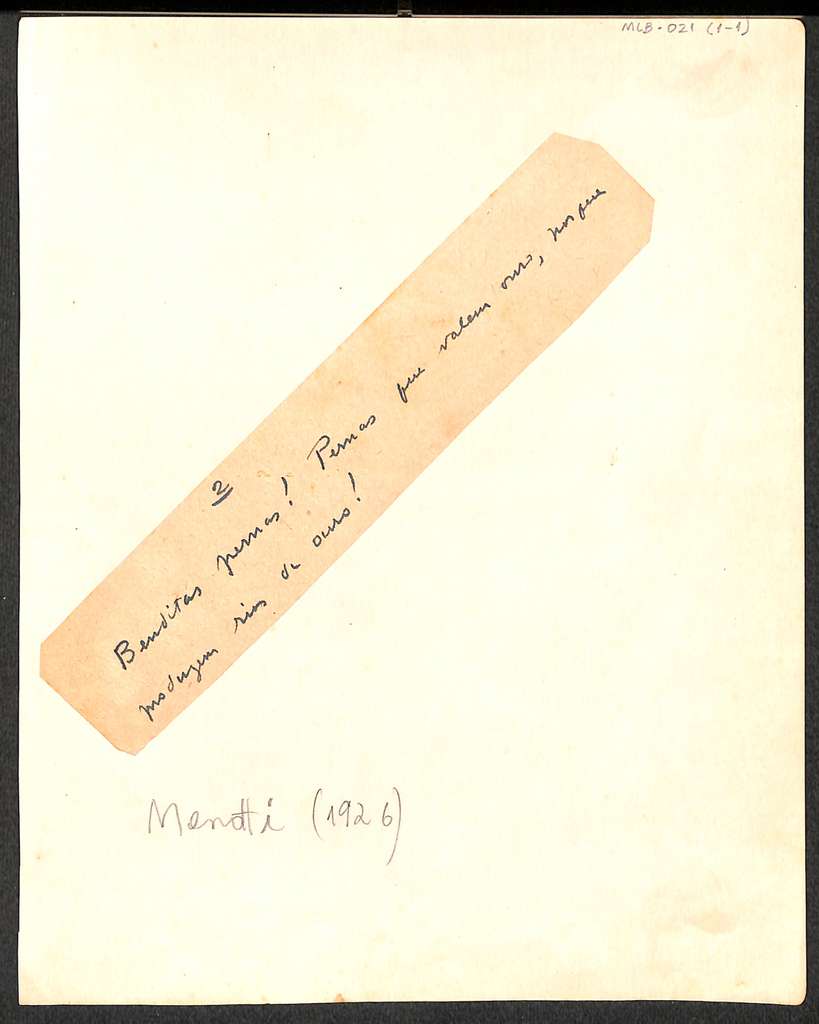 MLB-021 (1-1)
2
Benditas pernas! Pernas que valem ouro, porque
produzem rios de ouro!
Menotti (1926)